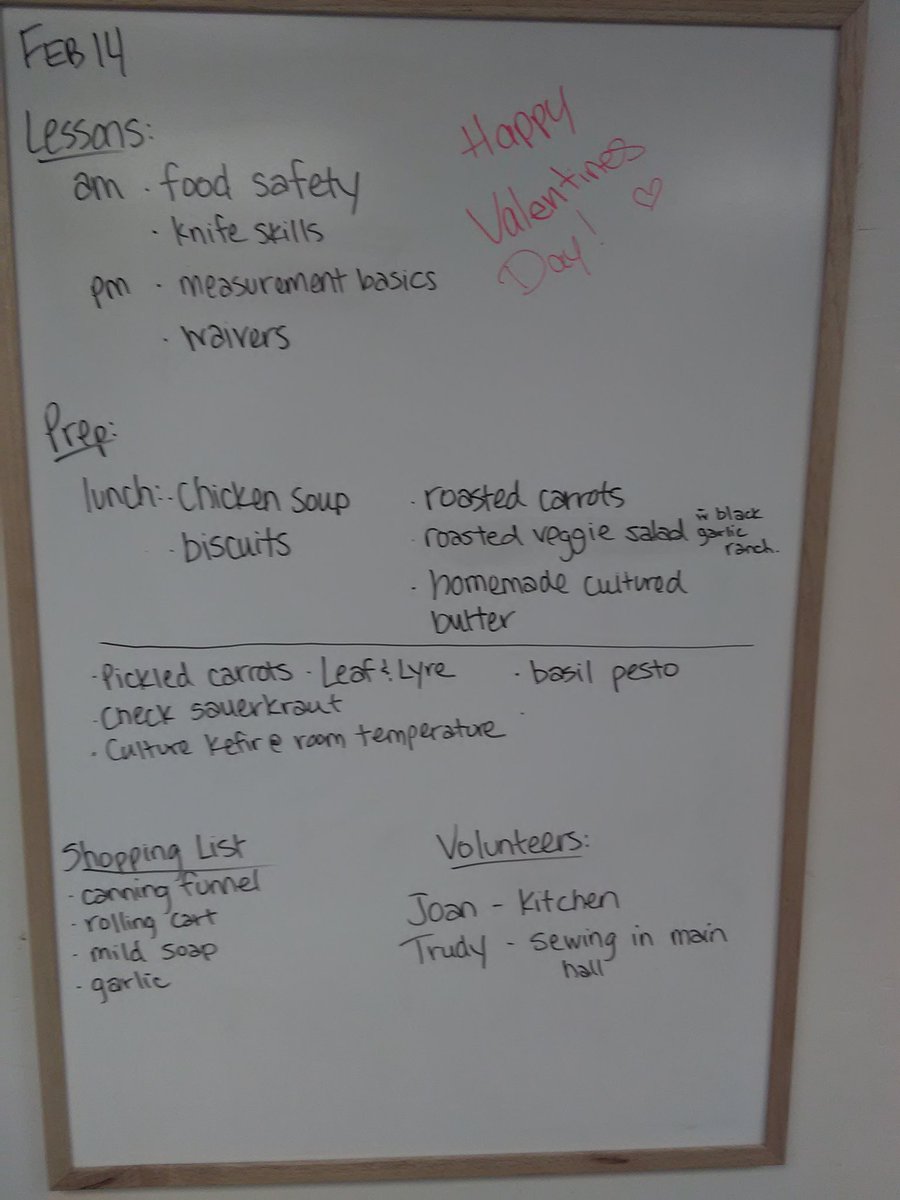 FEB 14
Happy
Valentines
Day! ♡
Lessons:
am · food safety
· knife skills
pm · measurement basics
· waivers
Prep:
lunch: · Chicken soup
· biscuits
· roasted carrots
· roasted veggie salad w̄ black garlic ranch.
· homemade cultured
butter
· Pickled carrots · Leaf & Lyre · basil pesto
· Check sauerkraut
· Culture Kefir @ room temperature
Shopping List
· canning funnel
· rolling cart
· mild soap
· garlic
Volunteers:
Joan - Kitchen
Trudy - Sewing in main
hall